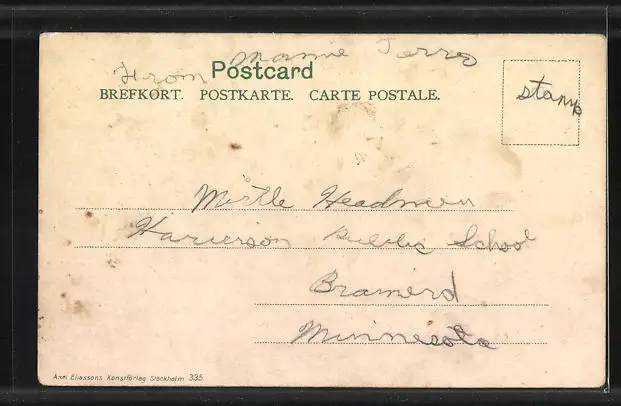 From Mamie Terry
Postcard
BREFKORT. POSTKARTE. CARTE POSTALE.
stamp
Mirtle Headmen
Harrierson Public School
Bramerd
Minnesota
Axel Eliassons Konstförlag Stockholm 335